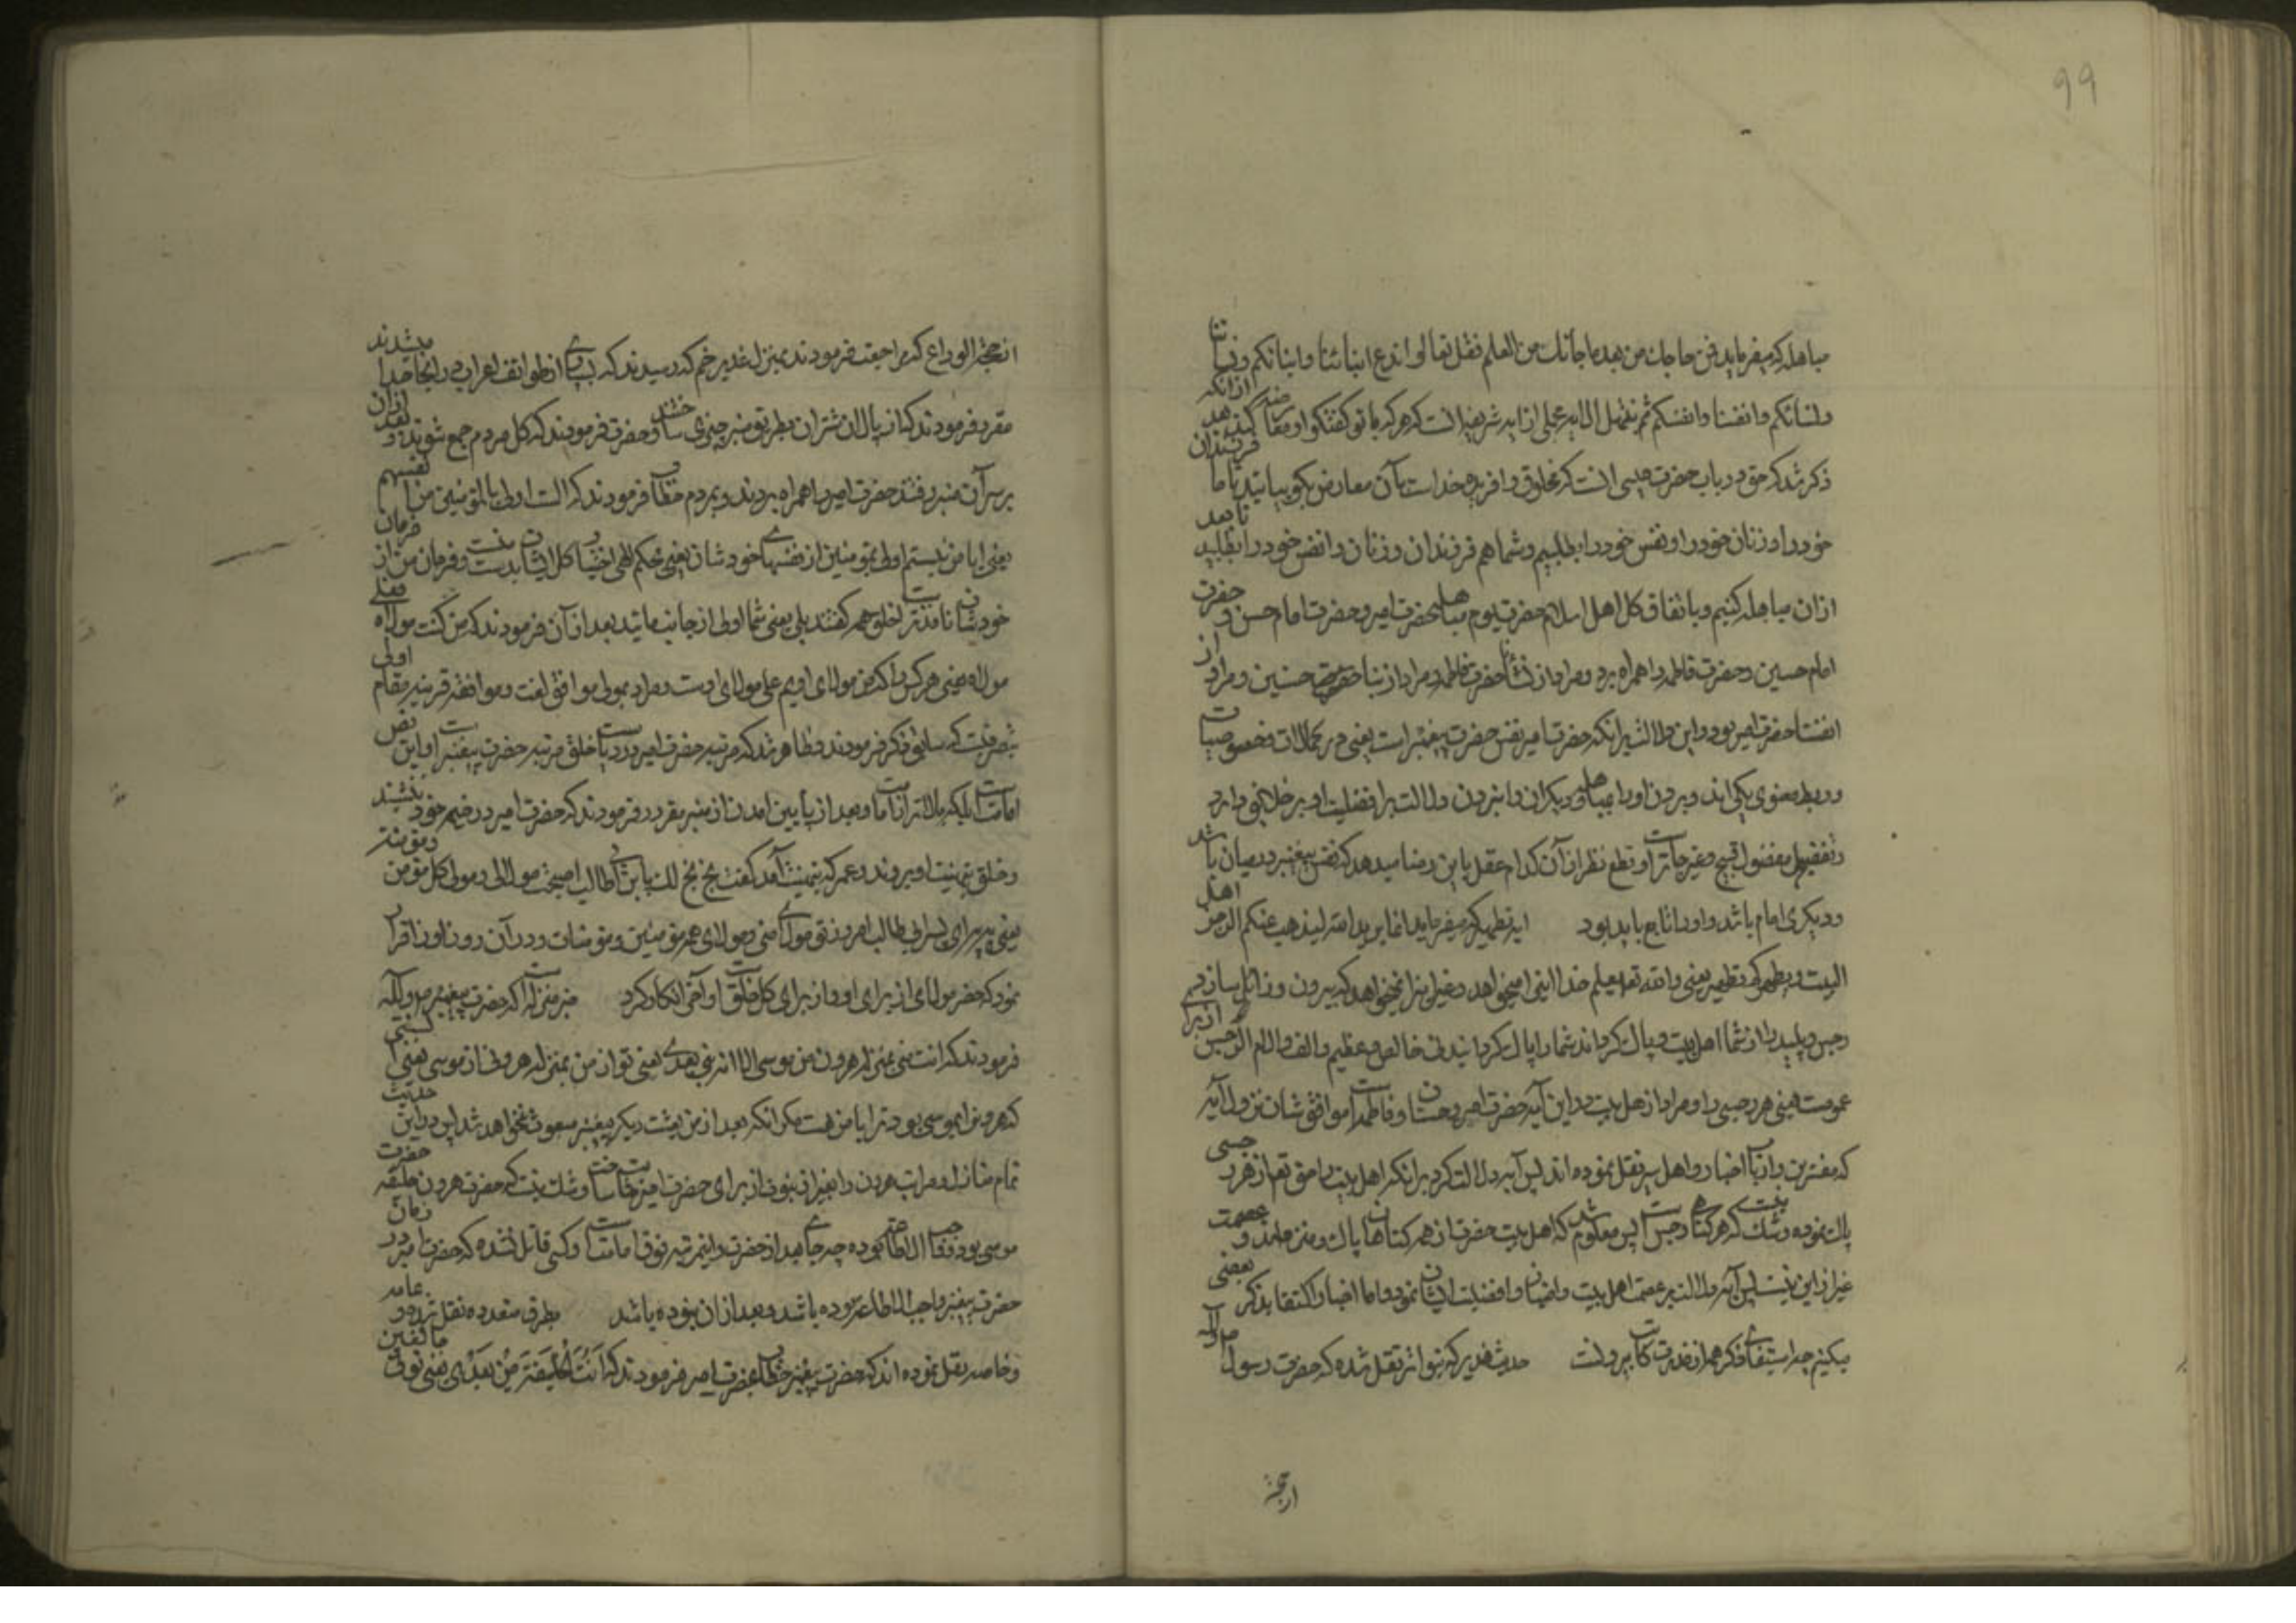 99
مباهله که میفرماید فمن حاجک من بعد ما جائک من العلم فقل تعالوا ندع ابنائنا و ابنائکم و نسائنا
و نسائکم و انفسنا و انفسکم ثم نبتهل الایه مجملی از ایه شریفه انست که هر که با تو گفتگو و معارضه کند بعد ازانکه
ذکر شد که حق در باب حضرت عیسی انست که مخلوق و افریده خداست بآن معارض بگو بیائید تا ما فرزندان
خود را و زنان خود را و نفس خود را بطلبیم و شما هم فرزندان و زنان و انفس خود را بطلبید تا بعد
ازان مباهله کنیم و باتفاق کل اهل اسلام حضرت یوم مباهله حضرت امیر و حضرت امام حسن و حضرت
امام حسین و حضرت فاطمه را همراه برد و مراد از نسائنا حضرت فاطمه و مراد از ابنائنا حضرت حسنین و مراد از
انفسنا حضرت امیر بود و این دلالت بر انکه حضرت امیر نفس حضرت پیغمبر است یعنی در کمالات و خصوصیات
و ربط معنوی یکی اند و بردن او را بمباهله و دیگران را نبردن دلالت بر افضلیت او بر خلایق دارد
و تفضیل مفضول قبیح و غیر جایز است و قطع نظر از آن کدام عقل باین رضا میدهد که نفس پیغمبر در میان باشد
و دیگری امام باشد و او را تابع باید بود ایه تطهیر که میفرماید انما یرید الله لیذهب عنکم الرجس اهل
البیت و یطهرکم تطهیرا یعنی والله تعالی یعلم خدا اینرا میخواهد و غیر اینرا نمیخواهد که بیرون و زائل سازد
رجس و پلید را از شما اهل بیت و پاک گرداند شما را پاک گردانیدنی خالص و عظیم و الف و لام الرجس از برای
عمومست یعنی هر رجسی را و مراد از اهل بیت در این آیه حضرت امیر و حسنان و فاطمه است موافق شان نزول آیه
که مفسرین و ارباب اخبار و اهل سیر نقل نموده اند پس آیه دلالت کرد بر انکه اهل بیت را حق تعالی از هر رجسی
پاک نموده و شک نیست که هر گناهی رجس است پس معلوم شد که اهل بیت حضرت از همه گناهان پاک و منزه اند و عصمت
غیر از این نیست پس آیه دلالت بر عصمت اهل بیت و افضلیت ایشان نمود و اما اخبار اکتفا بذکر بعضی
میکنیم چه استیفای ذکر همه از قدرت کتاب بیرونست حدیث غدیر که بتواتر نقل شده که حضرت رسول ص و آله
از حجة
از حجة الوداع که مراجعت فرمودند بمنزل غدیر خم که رسیدند که بسیاری از طوائف اعراب در انجا جدا میشدند
مقرر فرمودند که از پالان شتران بطریق منبر چیزی ساختند و حضرت فرمودند که کل مردم جمع شوند و بعد ازان
بر سر آن منبر رفتند حضرت امیر را همراه بردند و بمردم خطاب فرمودند که الست اولی بالمؤمنین من انفسهم
یعنی ایا من نیستم اولی بمؤمنین از نفسهای خودشان یعنی بحکم الهی اختیار کل ایشان بدست منست و فرمان من از فرمان
خودشان نافذتر است خلق همه گفتند بلی یعنی شما اولی از جانب مائید بعد از آن فرمودند که من کنت مولاه فعلی
مولاه یعنی هر کس را که من مولای اویم علی مولای اوست و مراد بمولی موافق لغت و موافقه قرینه مقام اولی
بتصرفست که سابق ذکر فرمودند و ظاهر شد که مرتبه حضرت امیر در باب خلق مرتبه حضرت پیغمبر است و این نص
امامت است بلکه بالاتر از امامت و بعد از پایین امدن از منبر مقرر فرمودند که حضرت امیر در خیمه خود بنشیند
و خلق بتهنیت او بروند و عمر که بتهنیت آمد گفت بخ بخ لک یابن ابی طالب اصبحت مولای و مولی کل مؤمن و مؤمنة
یعنی به به برای پسر ابی طالب امروز تو مولای منی و مولای همه مؤمنین و مؤمنات و در آن روز او را اقرار
نمود که حضر مولای از برای او و از برای کل خلق است و آخر انکار کرد خبر منزلة است که حضرت پیغمبر ص و آله
فرمودند که انت منی بمنزلة هرون من موسی الا انه لا نبی بعدی یعنی تو از من بمنزله هرونی از موسی یعنی نسبتی
که هرون را بموسی بود ترا با من هست مگر انکه بعد از من بعثت دیگر پیغمبر مبعوث نخواهد شد پس در این حدیث
تمام منازل و مراتب هرون را بغیر از نبوت از برای حضرت امیر ثابت ساخت و شک نیست که حضرت هرون خلیفه حضرت
موسی بود و واجب الاطاعه بوده چه جای بعد از حضرت و اینمرتبه فوق امامت است و کسی قائل نشده که حضرت امیر در زمان
حضرت پیغمبر واجب الاطاعه بوده باشد و بعد از ان نبوده باشد بطرق متعدده نقل نموده عامه
و خاصه نقل نموده اند که حضرت پیغمبر خطاب بحضرت امیر فرمودند که اَنتَ الخَلیفَة مِن بَعدی یعنی توئی